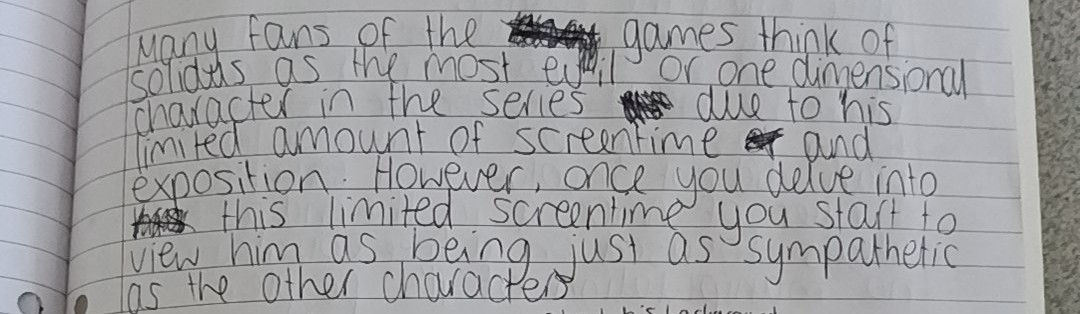 Many fans of the games think of
solidus as the most evil or one dimensional
character in the series due to his
limited amount of screentime and
exposition. However, once you delve into
this limited screentime you start to
view him as being just as sympathetic
as the other characters